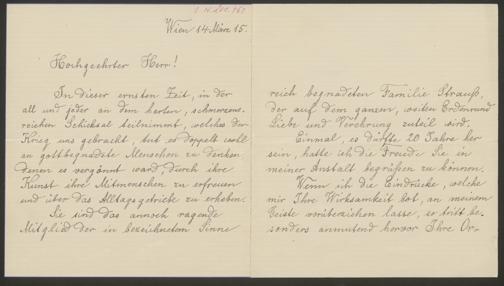 I.N. 202.761
Wien 14 März 15.
Hochgeehrter Herr!
In dieser ernsten Zeit, in der
all und jeder an dem harten, schmerzens-
reichen Schicksal teilnimmt, welches der
Krieg uns gebracht, tut es doppelt wohl
an gottbegnadete Menschen zu denken
denen es vergönnt ward, durch ihre
Kunst ihre Mitmenschen zu erfreuen
und über das Alltagsgetriebe zu erheben.
Sie sind das annoch ragende
Mitglied der in bezeichnetem Sinne
reich begnadeten Familie Strauß,
der auf dem ganzen, weiten Erdenrund
Liebe und Verehrung zuteil wird.
Einmal, es dürfte 20 Jahre her
sein, hatte ich die Freude Sie in
meiner Anstalt begrüßen zu können.
Wenn ich die Eindrücke, welche
mir Ihre Wirksamkeit bot, an meinem
Geiste vorüberziehen lasse, so tritt be-
sonders anmutend hervor Ihre Or-